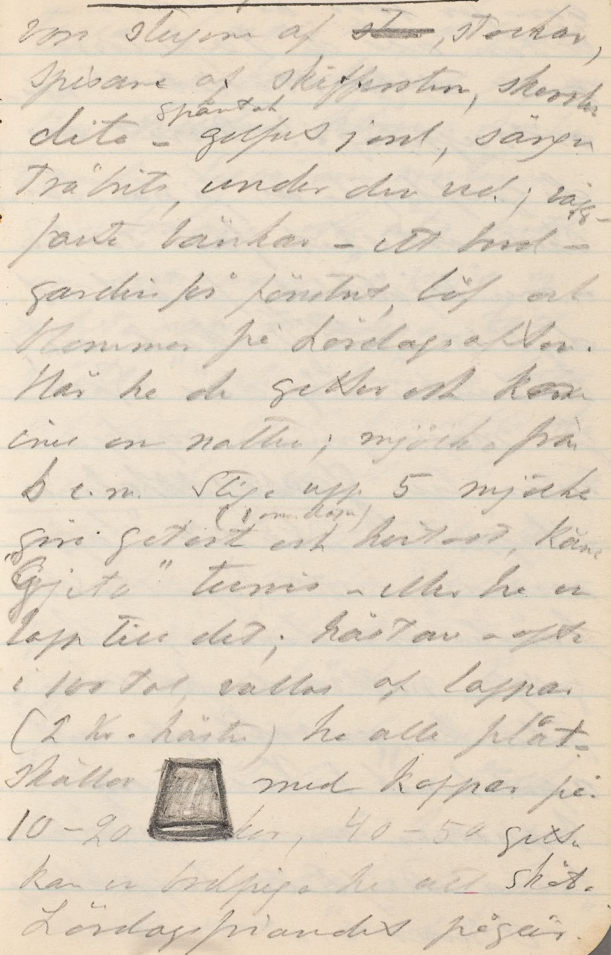 af stockar,
spisare af skiffersten,
dito - golfvet jord, sängar
träbrits, under den ved; vägg-
fasta bänkar - ett bord -
gardin för fönstret, löf och
blommor på Lördagsafton.
Här ha de getter och kor
inne om natten; mjölka från
5 e.m. Stiga upp 5 mjölka
göra getost och hvitost,
"Gjeta" - eller ha en
lapp till det; hästar - ofta
i 100 tal, vallas af lappar
(2 Kr. häst) ha alla plåt-
skällor med koppar på.
10-20 kor, 40-50 getter
kan en ha att sköt.
Lördagsfriandet pågår.